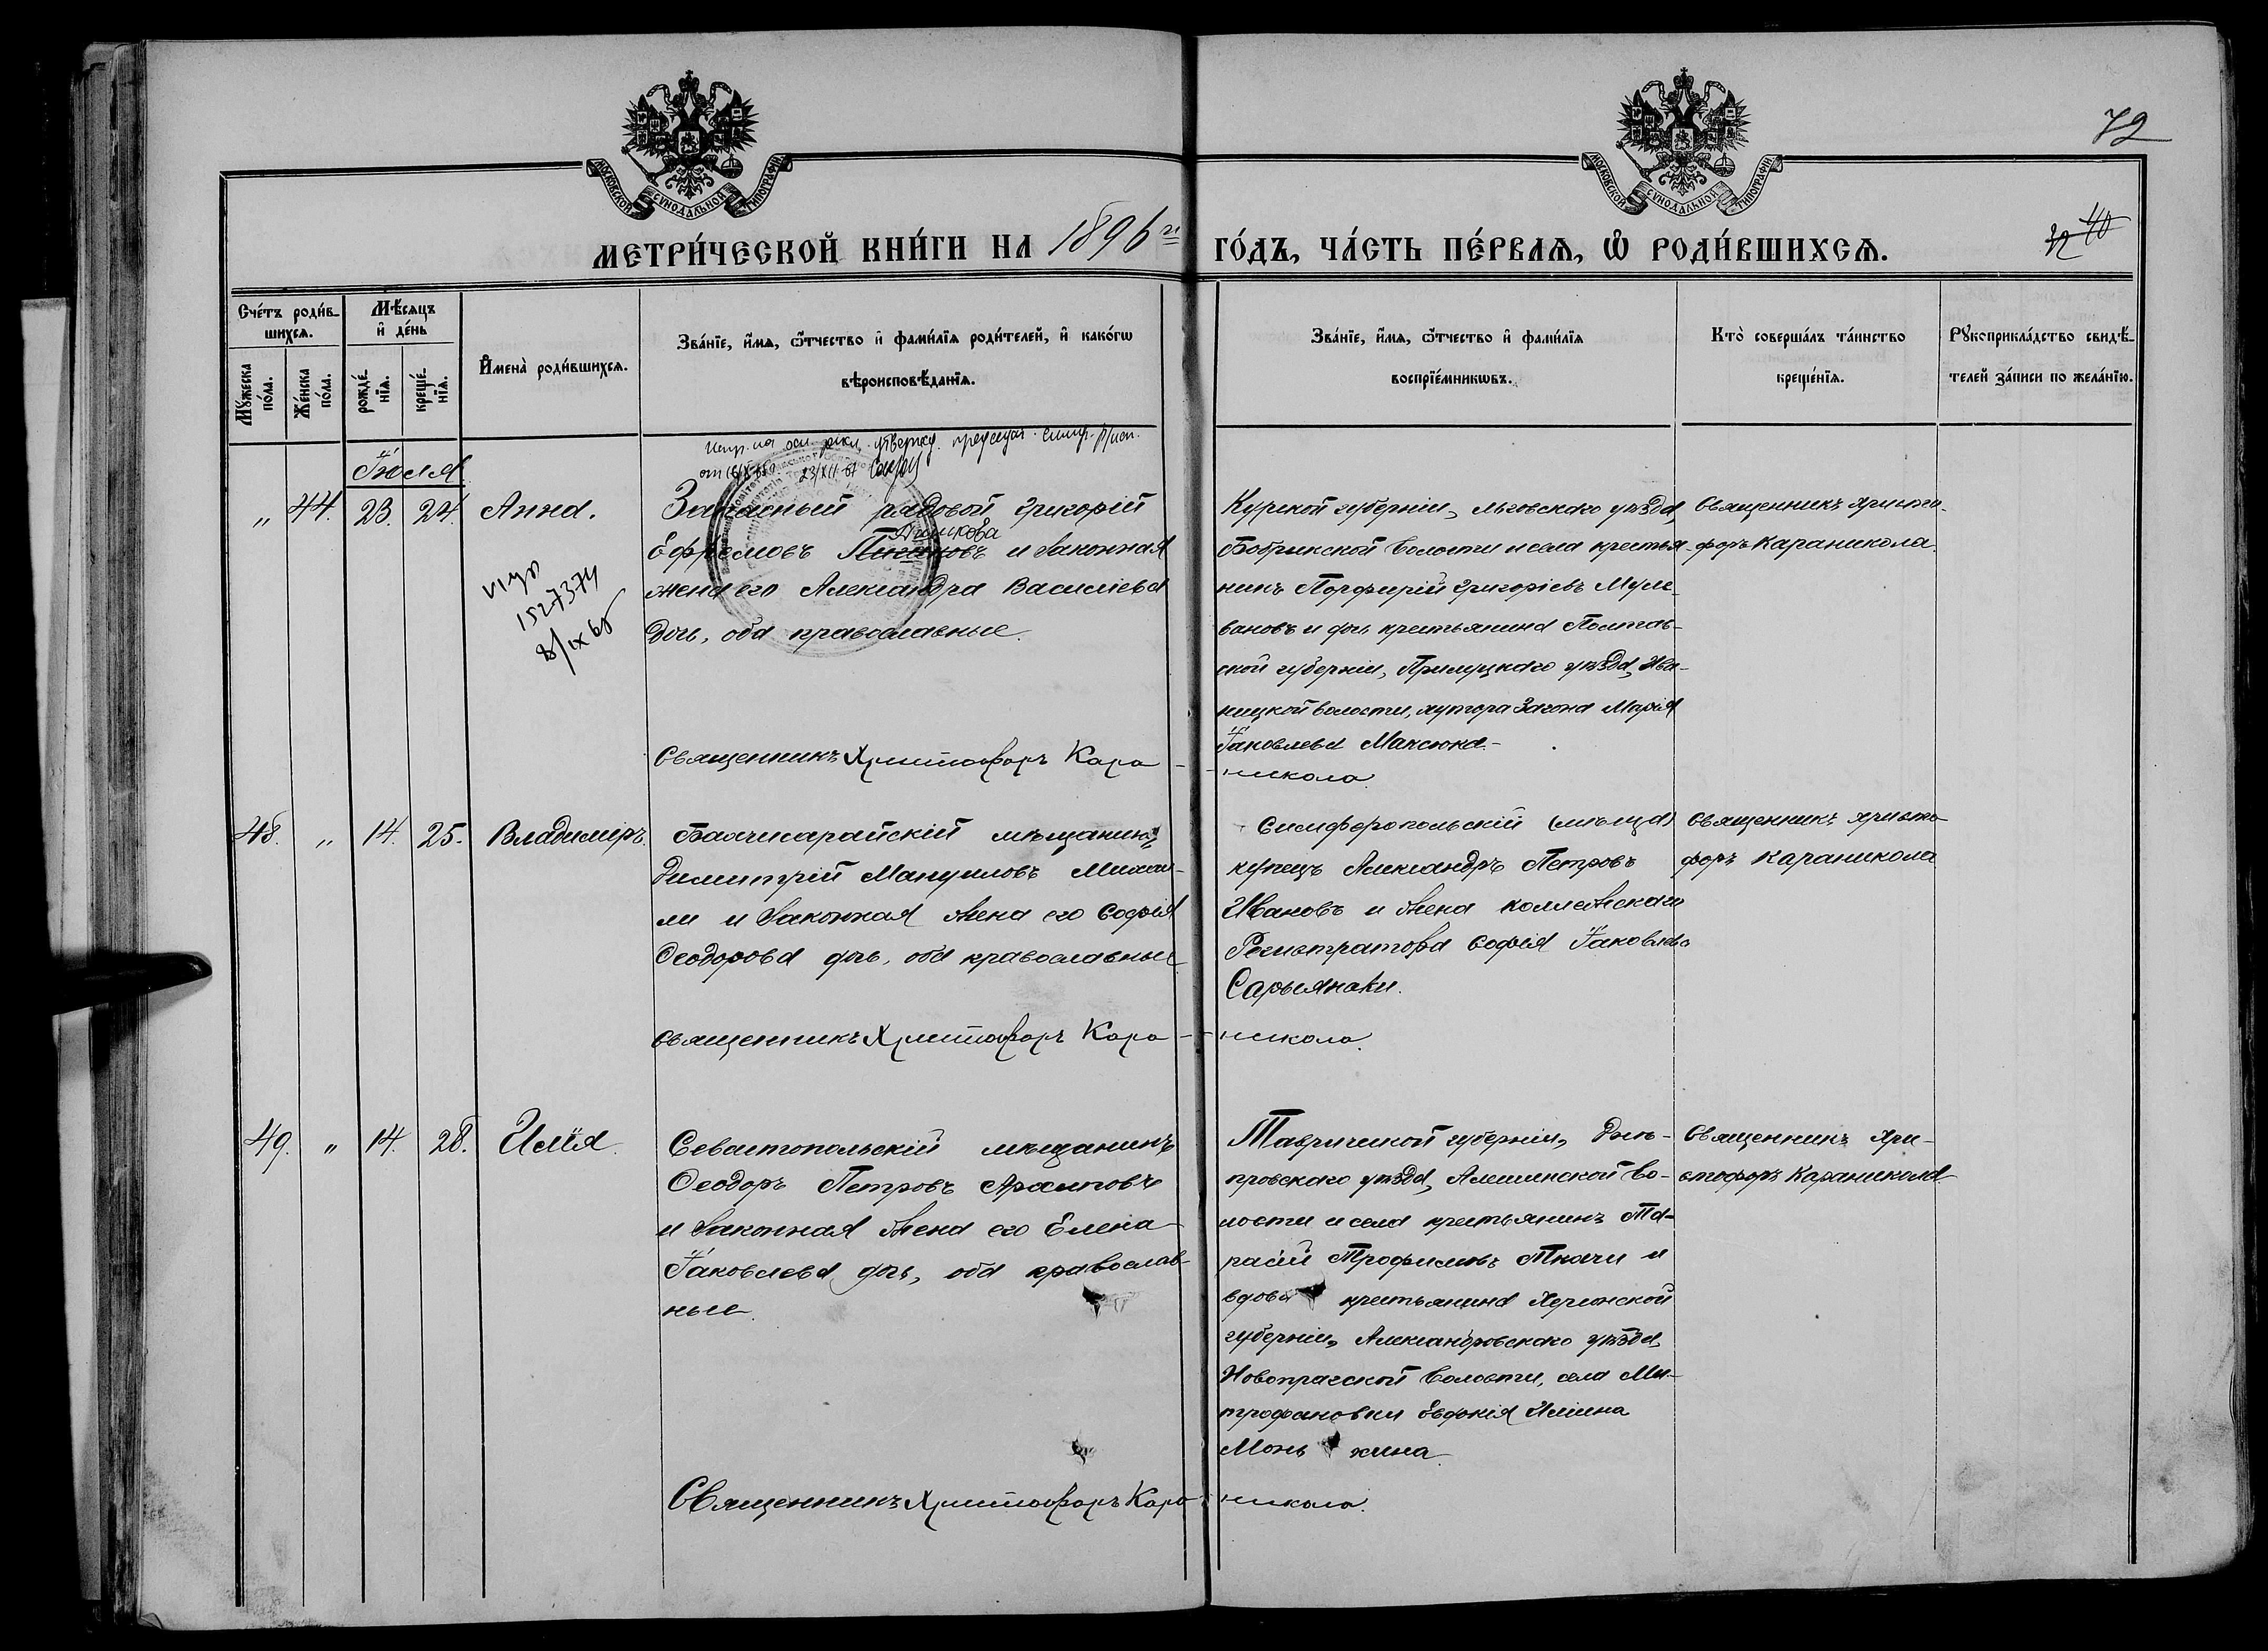 72
МОСКОВСКОЙ СѴНОДАЛЬНОЙ ТИПОГРАФІИ
МОСКОВСКОЙ СѴНОДАЛЬНОЙ ТИПОГРАФІИ
МЕТРИ́ЧЕСКОЙ КНИ́ГИ НА 1896 г.
ГО́ДЪ, ЧА́СТЬ ПЕ́РВАѦ, Ѡ҆ РОДИ́ВШИХСѦ.
40
Сче́тъ роди́в-
шихсѧ.
Мѣ́сѧцъ
и҆ де́нь
Мꙋ́жеска
по́ла.
Же́нска
по́ла.
рожде́-
нїѧ.
креще́-
нїѧ.
И҆мена̀ роди́вшихсѧ.
Зва́нїе, и҆́мѧ, ѻ҆́тчество и҆ фами́лїѧ роди́телей, и҆ како́гѡ
вѣроисповѣ́данїѧ.
Зва́нїе, и҆́мѧ, ѻ҆́тчество и҆ фами́лїѧ
воспрїе́мникѡвъ.
Кто̀ соверша́лъ та́инство
креще́нїѧ.
Рꙋкоприкла́дство свидѣ́-
телей за́писи по жела́нїю.
Іюля
„ 44. 23. 24. Анна.
1527374
Запасный рядовой Григорій
Ефремовъ и законная
жена его Александра Василіева
дочь, оба православные.
Священникъ Христофоръ Кара-
Курской губерніи, Льговскаго уѣзда,
Бобрикской волости и села крестья-
нинъ Порфирій Григоріевъ Муле-
вановъ и дочь крестьянина Полтав-
ской губерніи, Прилуцкаго уѣзда, Ива-
ницкой волости, хутора Загона Марія
Іаковлева Максюка.-
-никола.
Священникъ Христо-
форъ Караникола.
48. „ 14. 25. Владиміръ.
Бахчисарайскій мѣщанинъ
Димитрій Мануиловъ Михаи-
ли и законная жена его Софія
Ѳеодорова дочь, оба православные
Священникъ Христофоръ Кара-
Симферопольскій (мѣща)
купецъ Александръ Петровъ
Ивановъ и жена коллежскаго
Регистратора Софія Іаковлева
Сарыянаки.
-никола.
Священникъ Христо-
форъ Караникола
49. „ 14. 28. Илія.
Севастопольскій мѣщанинъ
Ѳеодоръ Петровъ Архиповъ
и законная жена его Елена
Іаковлева дочь, оба православ-
ные.
Священникъ Христофоръ Кара-
Таврической губерніи, Днѣ-
провскаго уѣзда, Алешинской во-
лости и села крестьянинъ Та-
расій Трофимовъ Ткачи и
вдова крестьянина Херсонской
губерніи, Александровскаго уѣзда,
Новопражской волости, села Ми-
трофановки Евфимія Ильина
Монь кина.
никола.
Священникъ Хри-
стофоръ Караникола